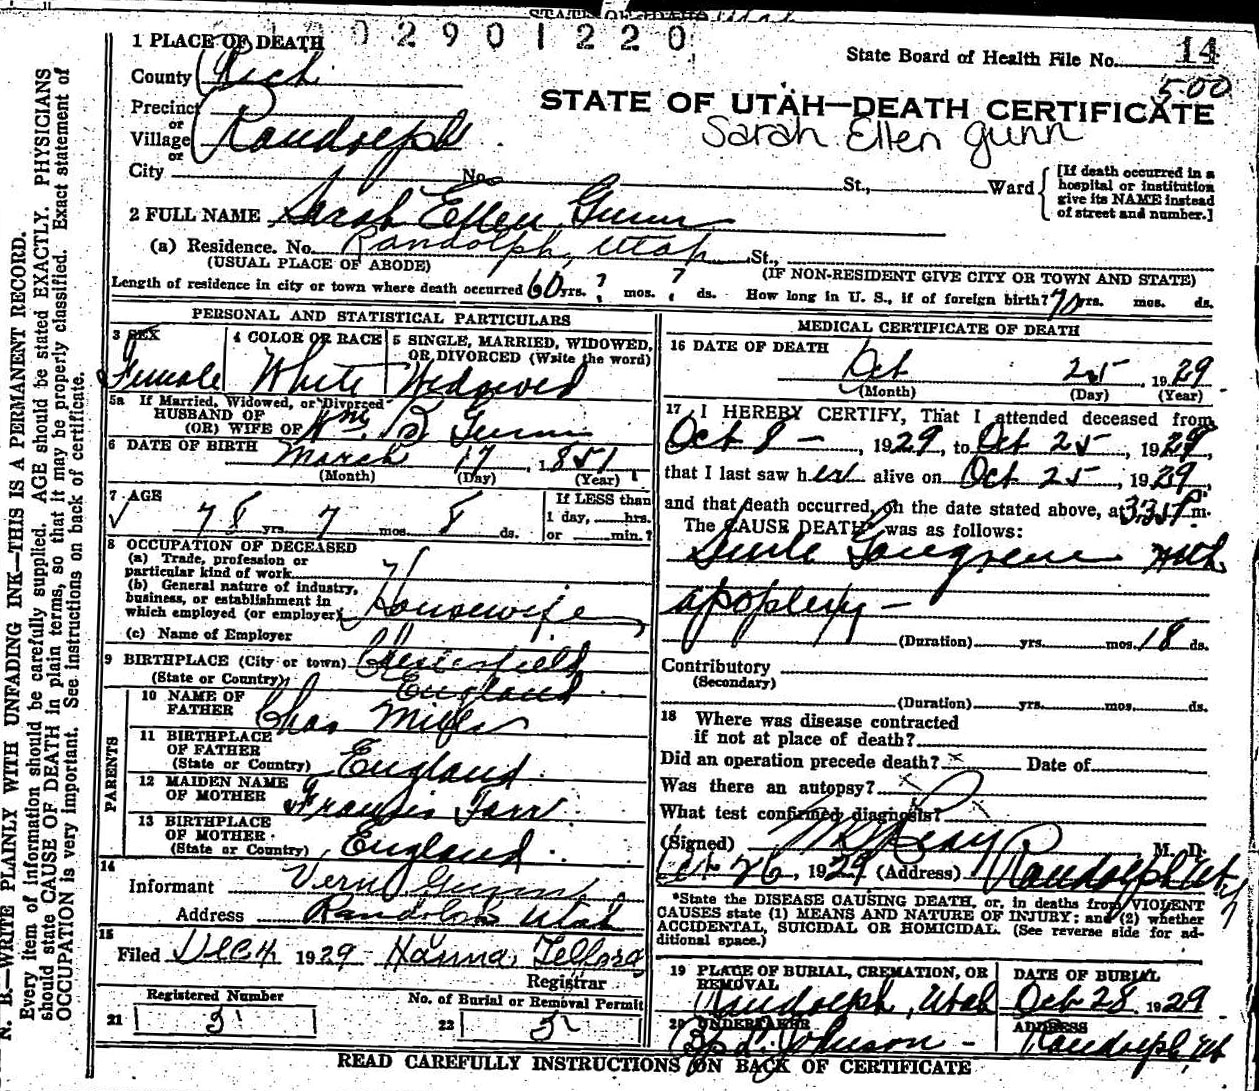 0 2 9 0 1 2 2 0
1 PLACE OF DEATH
State Board of Health File No. 14
County Rich
500
Precinct
or
STATE OF UTAH—DEATH CERTIFICATE
Village Randolph
or
Sarah Ellen Gunn
City No. St., Ward
[If death occurred in a
hospital or institution
give its NAME instead
of street and number.]
2 FULL NAME Sarah Ellen Gunn
(a) Residence. No. Randolph, Utah St.,
(USUAL PLACE OF ABODE) (IF NON-RESIDENT GIVE CITY OR TOWN AND STATE)
Length of residence in city or town where death occurred 60 yrs. ? mos. ? ds. How long in U. S., if of foreign birth? yrs. mos. ds.
PERSONAL AND STATISTICAL PARTICULARS
3 SEX
Female
4 COLOR OR RACE
White
5 SINGLE, MARRIED, WIDOWED,
OR DIVORCED (Write the word)
Widowed
5a If Married, Widowed, or Divorced
HUSBAND OF
(OR) WIFE OF Wm. B Gunn
6 DATE OF BIRTH March 17, 1851
(Month) (Day) (Year)
7 AGE
78 yrs. 7 mos. 8 ds.
If LESS than
1 day, hrs.
or min.?
8 OCCUPATION OF DECEASED
(a) Trade, profession or
particular kind of work
(b) General nature of industry,
business, or establishment in
which employed (or employer) Housewife
(c) Name of Employer
9 BIRTHPLACE (City or town) Chesterfield
(State or Country) England
PARENTS
10 NAME OF
FATHER Chas
11 BIRTHPLACE
OF FATHER
(State or Country) England
12 MAIDEN NAME
OF MOTHER
13 BIRTHPLACE
OF MOTHER
(State or Country) England
14
Informant Gunn
Address Randolph Utah
15
Filed Dec 4 1929 Hanna Telford
Registrar
Registered Number
21 5
No. of Burial or Removal Permit
22 5
MEDICAL CERTIFICATE OF DEATH
16 DATE OF DEATH
Oct 25, 1929
(Month) (Day) (Year)
17 I HEREBY CERTIFY, That I attended deceased from
Oct 8 — 1929, to Oct 25, 1929,
that I last saw her alive on Oct 25, 1929,
and that death occurred, on the date stated above, at m.
The CAUSE DEATH* was as follows:
Senile Gangrene with
apoplexy —
(Duration) yrs. mos. 18 ds.
Contributory
(Secondary)
(Duration) yrs. mos. ds.
18 Where was disease contracted
if not at place of death?
Did an operation precede death? x Date of
Was there an autopsy? x
What test confirmed diagnosis? x
(Signed) M. D.
Oct 26, 1929 (Address) Randolph Ut
*State the DISEASE CAUSING DEATH, or, in deaths from VIOLENT
CAUSES state (1) MEANS AND NATURE OF INJURY; and (2) whether
ACCIDENTAL, SUICIDAL OR HOMICIDAL. (See reverse side for ad-
ditional space.)
19 PLACE OF BURIAL, CREMATION, OR
REMOVAL
Randolph, Utah
DATE OF BURIAL
Oct 28, 1929
20 UNDERTAKER
Johnson —
ADDRESS
Randolph, Ut
READ CAREFULLY INSTRUCTIONS ON BACK OF CERTIFICATE
N. B.—WRITE PLAINLY WITH UNFADING INK—THIS IS A PERMANENT RECORD.
Every item of information should be carefully supplied. AGE should be stated EXACTLY. PHYSICIANS
should state CAUSE OF DEATH in plain terms, so that it may be properly classified. Exact statement of
OCCUPATION is very important. See instructions on back of certificate.